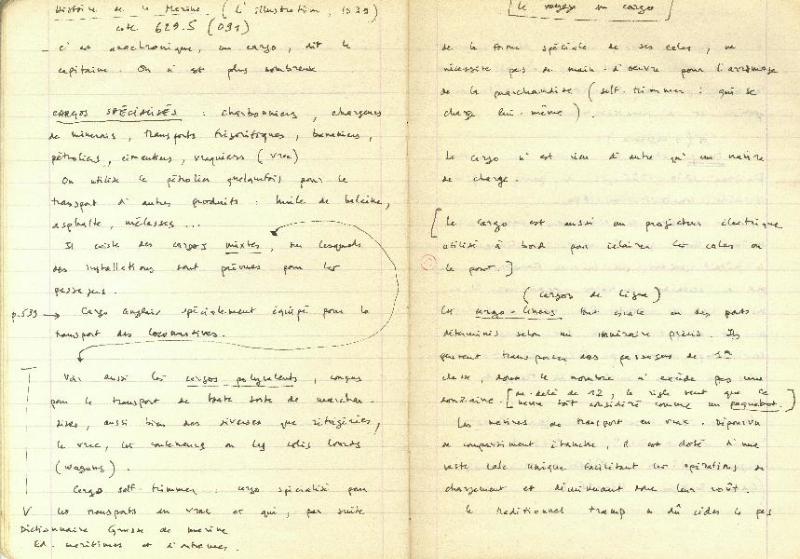 Histoire de la Marine (L'illustration, 1939)
cote 629.5 (091)
c'est anachronique, un cargo, dit le
capitaine. On n'est plus nombreux
CARGOS SPÉCIALISÉS : charbonniers, chargeurs
de minerais, transports frigorifiques, bananiers,
pétroliers, cimentiers, vraquiers (vrac)
On utilise le pétrolier quelquefois pour le
transport d'autres produits : huile de baleine,
asphalte, mélasses ...
Il existe des cargos mixtes, sur lesquels
des installations sont prévues pour les
passagers.
p.539 → Cargo anglais spécialement équipé pour le
transport des locomotives.
Voir aussi les cargos polyvalents, conçus
pour le transport de toute sorte de marchan-
dises, aussi bien des diverses que réfrigérées,
le vrac, les conteneurs ou les colis lourds
(wagons).
Cargo self-trimmer : cargo spécialisé pour
les transports en vrac et qui, par suite
Dictionnaire Gruss de marine
Ed. maritimes et d'outremer.
[Le voyage en cargo]
de la forme spéciale de ses cales, ne
nécessite pas de main-d'œuvre pour l'arrimage
de la marchandise (self-trimmer : qui se
charge lui-même).
Le cargo n'est rien d'autre qu'un navire
de charge.
[Le cargo est aussi un projecteur électrique
utilisé à bord pour éclairer les cales ou
le pont.]
(cargos de ligne)
Les cargo-liners font escale en des ports
déterminés selon un itinéraire précis. Ils
peuvent transporter des passagers de 1re
classe, dont le nombre n'excède pas une
douzaine. [au-delà de 12, la règle veut que ce
navire soit considéré comme un paquebot.]
Les navires de transport en vrac. Dépourvu
de compartiment étanche, il est doté d'une
vaste cale unique facilitant les opérations de
chargement et diminuant donc leur coût.
Le traditionnel tramp a dû céder le pas